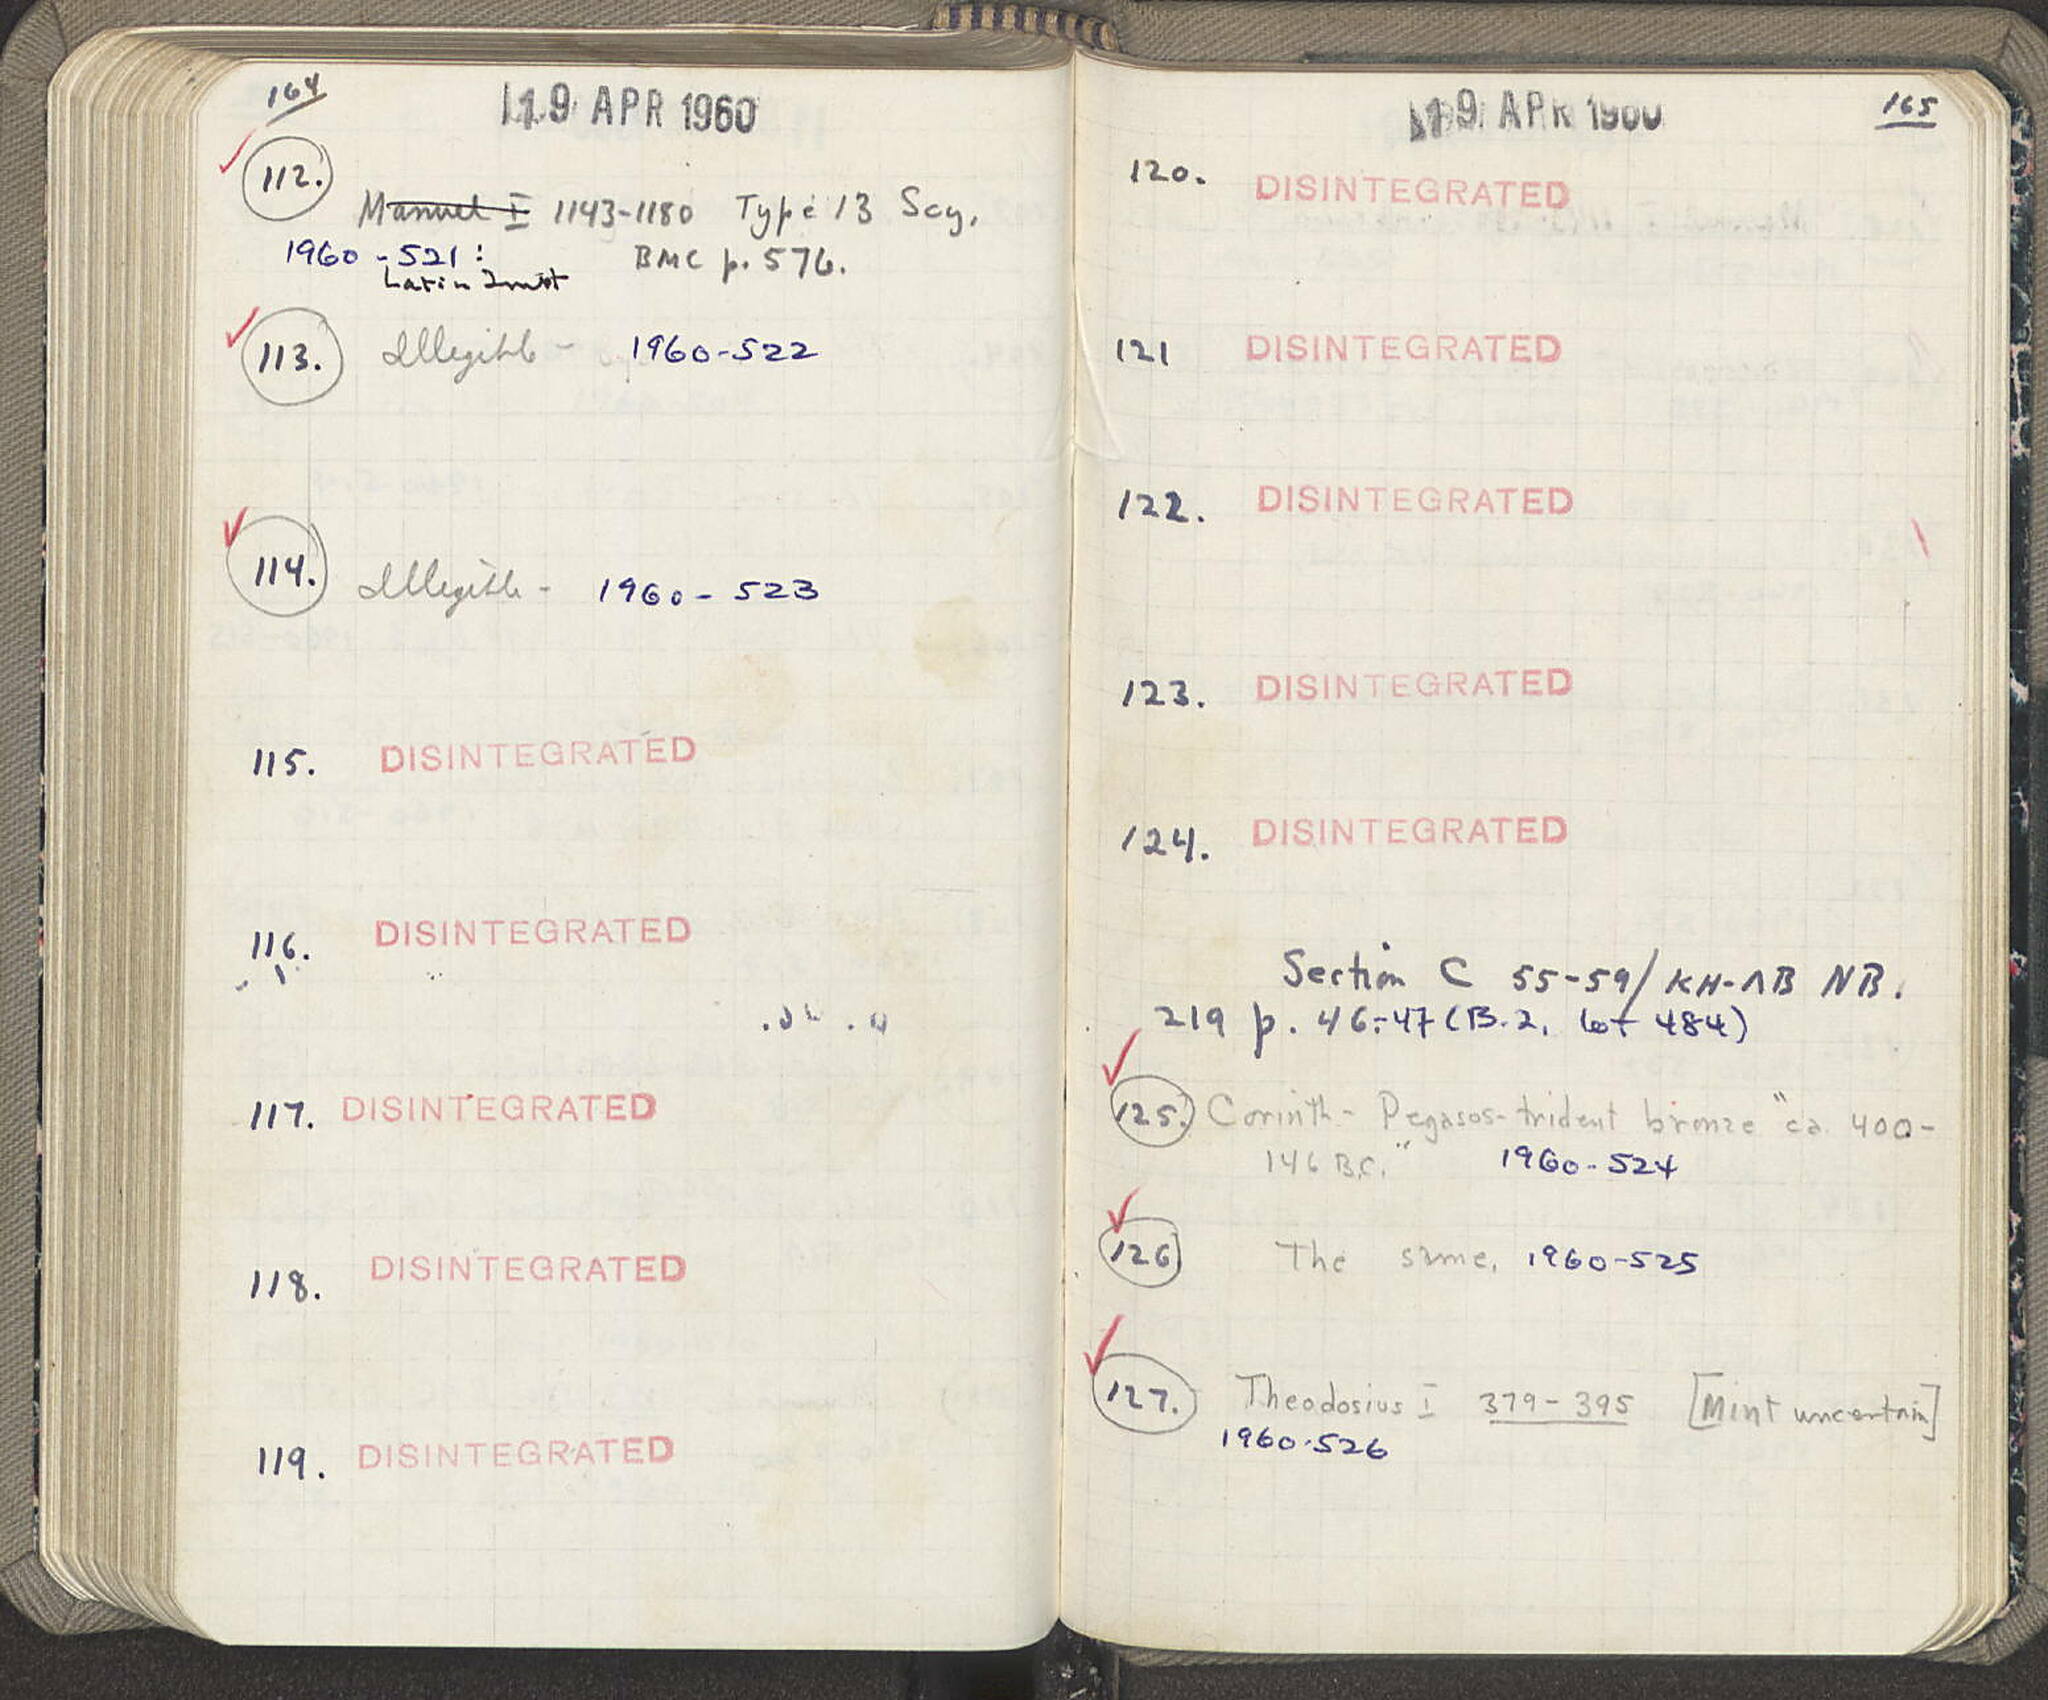 164
19 APR 1960
112.
Manuel I 1143-1180 Type 13 Scy.
1960-521: BMC p. 576.
Latin Imit
113. Illegible - 1960-522
114. Illegible - 1960-523
115. DISINTEGRATED
116. DISINTEGRATED
117. DISINTEGRATED
118. DISINTEGRATED
119. DISINTEGRATED
165
19 APR 1960
120. DISINTEGRATED
121 DISINTEGRATED
122. DISINTEGRATED
123. DISINTEGRATED
124. DISINTEGRATED
Section C 55-59/KH-ΛB NB.
219 p. 46-47 (B.2, lot 484)
125. Corinth - Pegasos-trident bronze "ca. 400-
146 B.C." 1960-524
126 The same, 1960-525
127. Theodosius I 379-395 [Mint uncertain]
1960-526